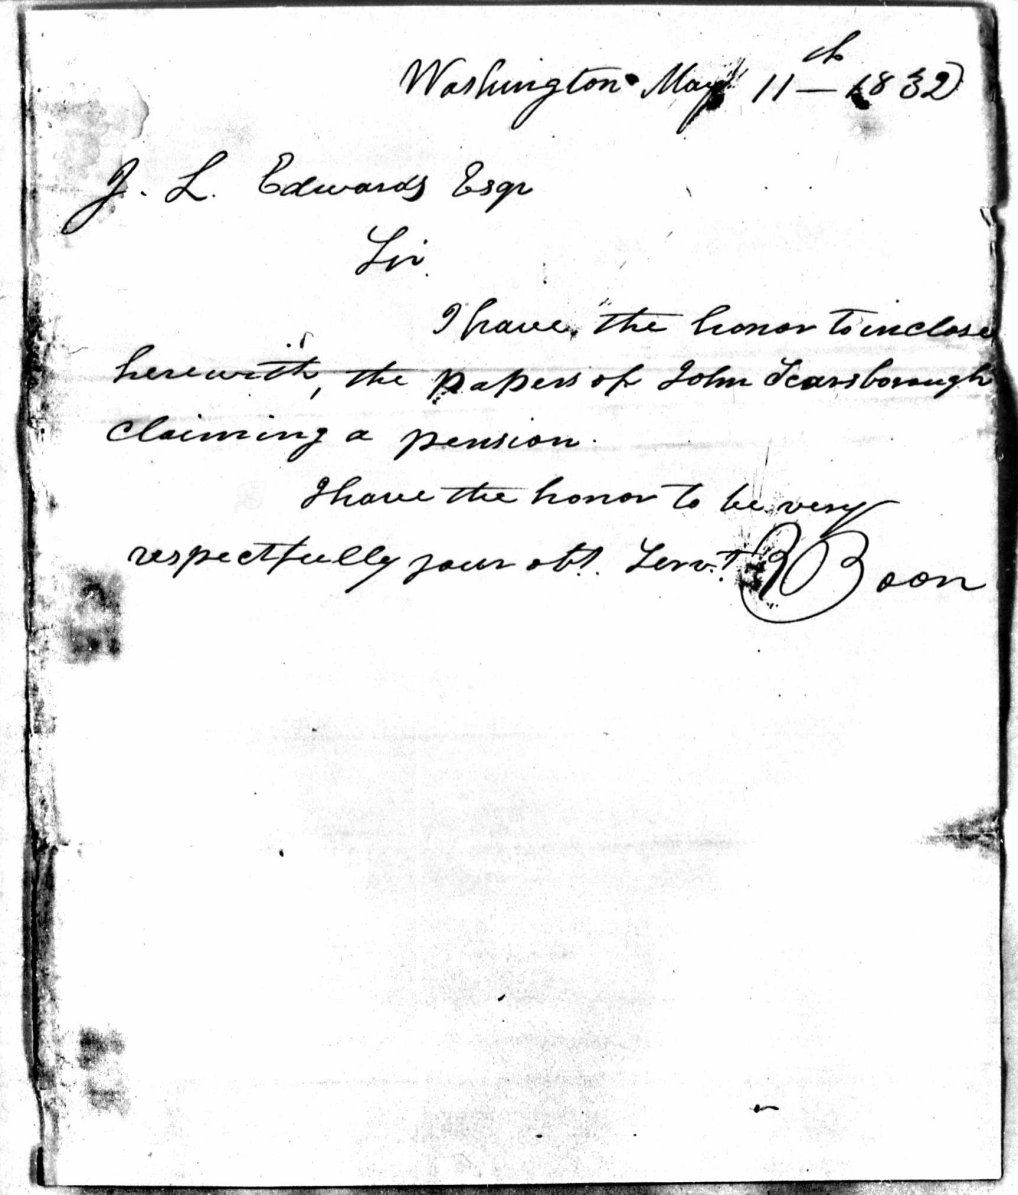 Washington May 11th 1832
J. L. Edwards Esqr
Sir
I have, the honor to inclose
herewith, the papers of John Scarsborough
claiming a pension.
I have the honor to be very
respectfully your obt. Servt. R Boon